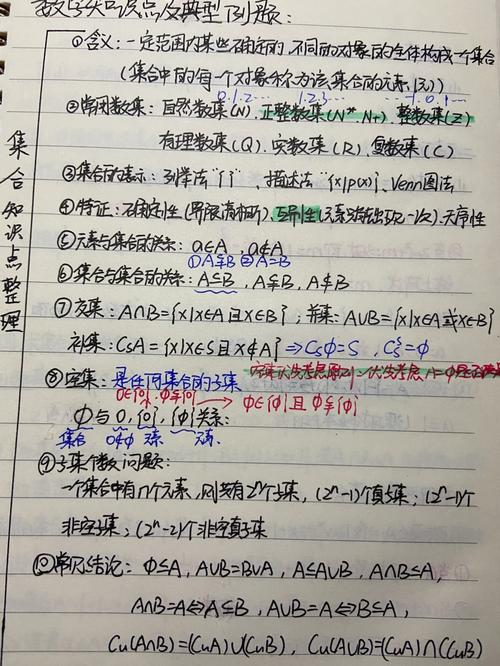 数学知识点及典型例题：
集合知识点整理
①含义：一定范围内某些确定的，不同的对象的全体构成一个集合
（集合中的每一个对象称为该集合的元素，
0.1.2… 1.2.3… -1.0.1…
②常用数集：自然数集(N)，正整数集(N*.N+)，整数集(Z)
有理数集(Q)，实数集(R)，复数集(C)
③集合的表示：列举法“{ }”，描述法“{x|p(x)}，Venn图法
④特征：确定性(界限清晰)，互异性(元素只能出现一次)，无序性
⑤元素与集合的关系：a∈A，a∉A
①A⫋B ②A=B
⑥集合与集合的关系：A⊆B，A⫋B，A⊈B
⑦交集：A∩B={x|x∈A且x∈B}；并集：A∪B={x|x∈A或x∈B}
补集：CsA={x|x∈S且x∉A}⇒Csφ=S，CsS=φ
⑧空集：是任何集合的子集
0∈{0}，φ⫋{0} → φ∈{φ}且φ⫋{φ}
φ与0，{0}，{φ}关系：
集合 0∉φ 元素 元素
⑨子集个数问题：
一个集合中有n个元素，则共有2ⁿ个子集，(2ⁿ-1)个真子集；(2ⁿ-1)个
非空子集；(2ⁿ-2)个非空真子集
⑩常见结论：φ⊆A，A∪B=B∪A，A⊆A∪B，A∩B⊆A，
A∩B=A⇔A⊆B，A∪B=A⇔B⊆A，
Cu(A∩B)=(CuA)∪(CuB)，Cu(A∪B)=(CuA)∩(CuB)